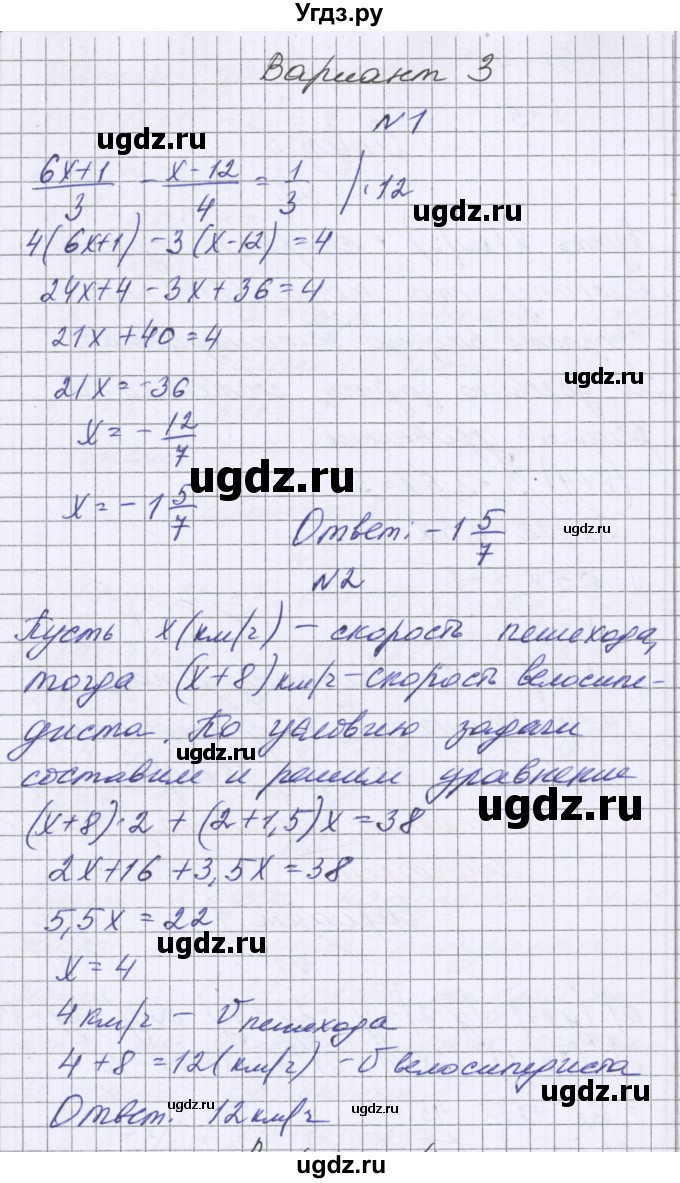 Угдз.ру
Вариант 3
ugdz.ru
№1
(6x+1)/3 - (x-12)/4 = 1/3 |·12
ugdz.ru
4(6x+1) - 3(x-12) = 4
24x+4 - 3x+36=4
21x+40=4
ugdz.ru
21x=-36
x= - 12/7
ugdz.ru
x= - 1 5/7
Ответ: - 1 5/7
ugdz.ru
№2
Пусть x(км/ч) - скорость пешехода,
тогда (x+8)км/ч - скорость велосипе-
диста. По условию задачи
ugdz.ru
составим и решим уравнение
ugdz.ru
(x+8)·2 + (2+1,5)x=38
2x+16+3,5x=38
5,5x=22
ugdz.ru
x=4
4км/ч - υ пешехода
4+8=12(км/ч) - υ велосипедиста
ugdz.ru
Ответ: 12км/ч
ugdz.ru
ugdz.ru
ugdz.ru
ugdz.ru